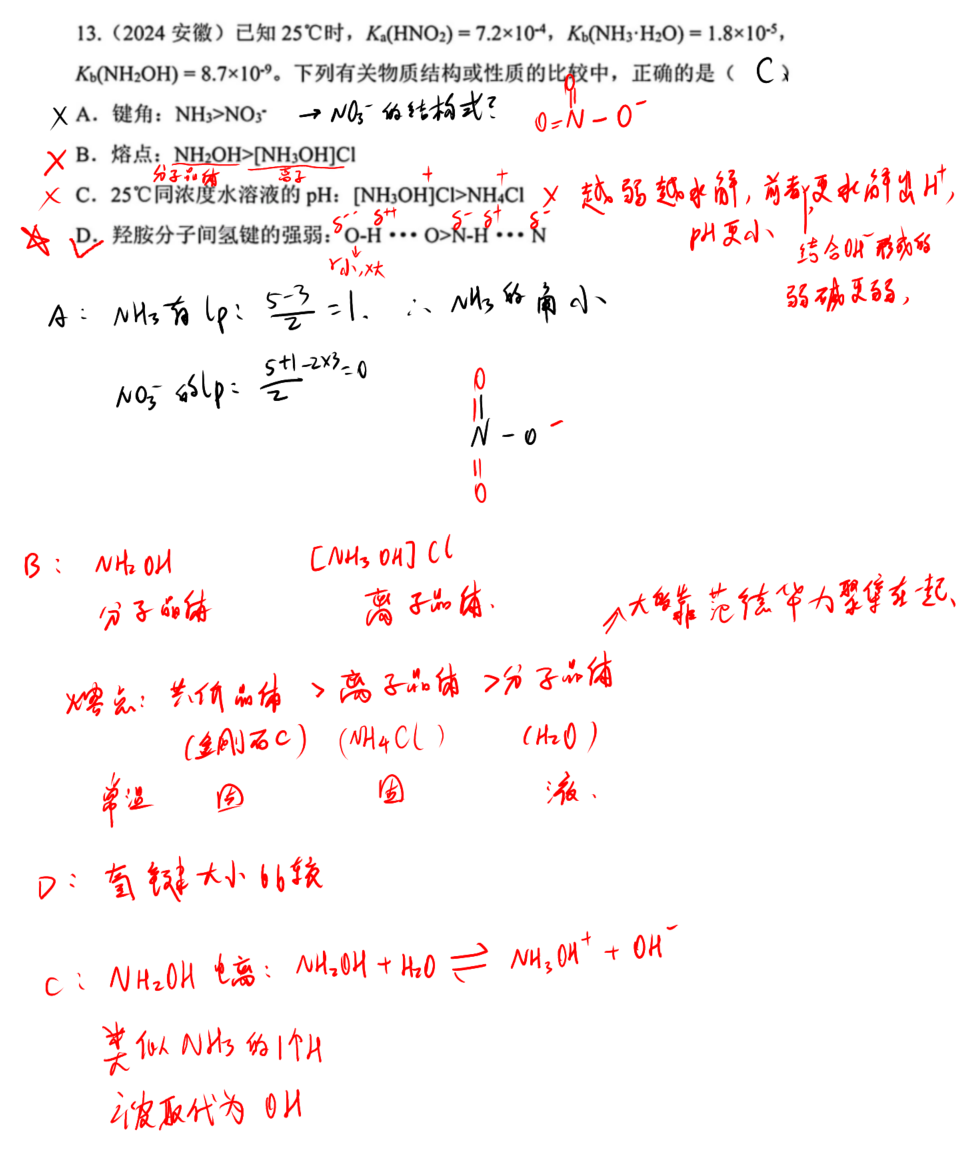 13.（2024 安徽）已知 25℃时，Kₐ(HNO₂) = 7.2×10⁻⁴，K_b(NH₃·H₂O) = 1.8×10⁻⁵，
K_b(NH₂OH) = 8.7×10⁻⁹。下列有关物质结构或性质的比较中，正确的是（ C ）
× A．键角：NH₃>NO₃⁻ → NO₃⁻ 的结构式? O=N-O⁻
O
× B．熔点：NH₂OH>[NH₃OH]Cl
分子晶体 离子
× C．25℃同浓度水溶液的 pH：[NH₃OH]Cl>NH₄Cl × 越弱越水解，前者更水解出H⁺，
+ +
pH更小
结合OH⁻形成的
弱碱更弱，
☆ ✓ D．羟胺分子间氢键的强弱：O-H···O>N-H···N
δ⁻⁻ δ⁺⁺ δ⁻ δ⁺ δ⁻
r小，x大
A： NH₃有lp： (5-3)/2 =1. ∴ NH₃的角小
NO₃⁻的lp： (5+1-2×3)/2 =0
O
||
N-O⁻
||
O
B： NH₂OH [NH₃OH]Cl
分子晶体 离子晶体.
↗大多靠范德华力聚集在一起、
熔点：共价晶体 > 离子晶体 > 分子晶体
(金刚石C) (NH₄Cl) (H₂O)
常温 固 固 液.
D： 氢键大小比较
C： NH₂OH电离： NH₂OH + H₂O ⇌ NH₃OH⁺ + OH⁻
类似NH₃的1个H
被取代为OH